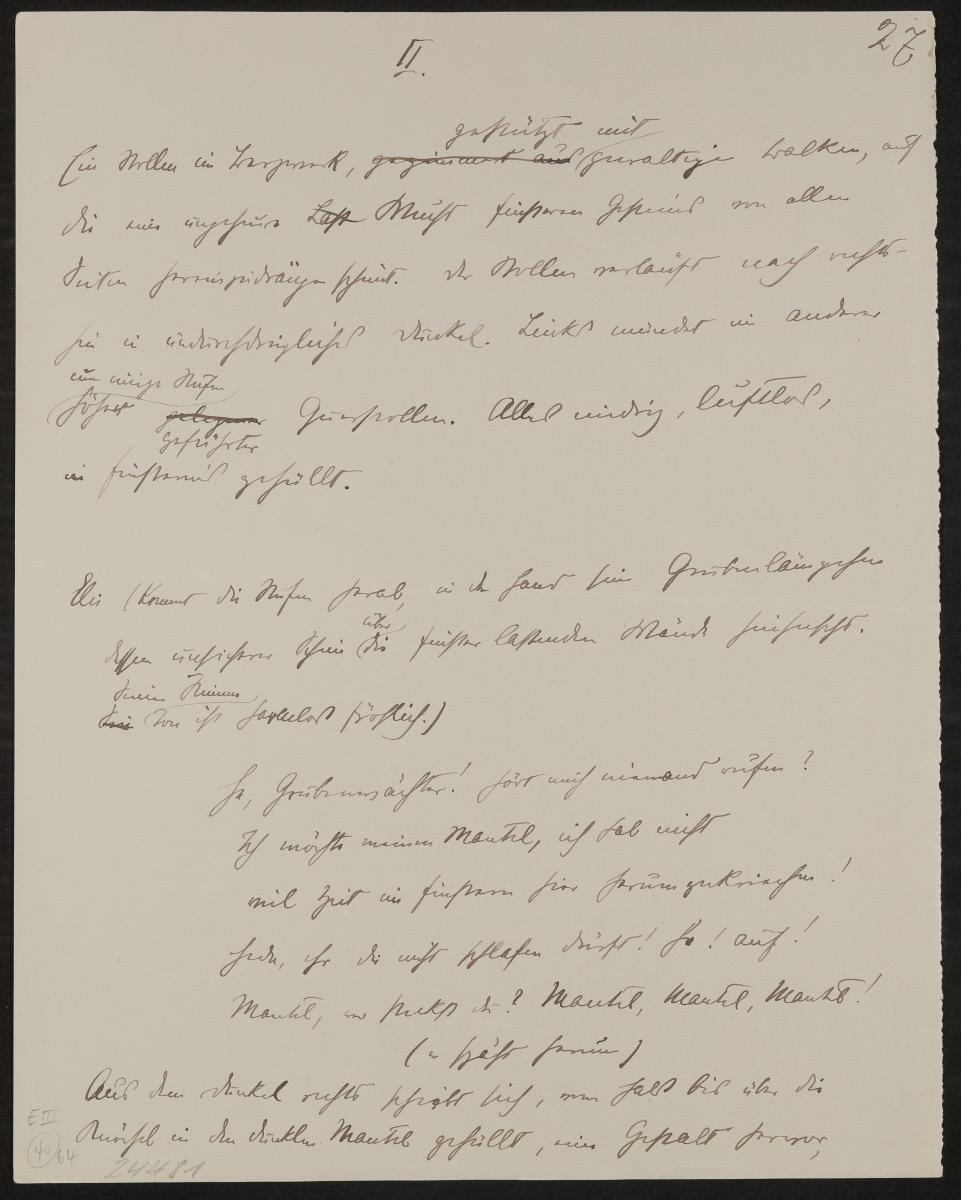 27
II.
gestützt mit
Ein Stollen im Bergwerk, gezimmert aus gewaltige Balken, auf
die eine ungeheure Last Wucht finsteren Gesteins von allen
Seiten hereinzudrängen scheint. Der Stollen verläuft nach rechts-
hin in undurchdringliches Dunkel. Links mündet ein anderer
um einige Stufen
höher gelegener Querstollen. Alles niedrig, luftlos,
geführter
in Finsternis gehüllt.
Elis (kommt die Stufen herab, in der Hand sein Grubenlämpchen
über
dessen unsicherer Schein die finster lastenden Wände hinhuscht.
Seine Stimme
Sein Ton ist harmlos fröhlich.)
He, Grubenwächter! Hört mich niemand rufen?
Ich möchte meinen Mantel, ich hab nicht
viel Zeit im Finstern hier herumzukriechen!
Heda, ihr die nicht schlafen dürft! He! auf!
Mantel, wo steckst du? Mantel, Mantel, Mantel!
(er späht herum)
Aus dem Dunkel rechts schiebt sich, vom Hals bis über die
Knöchel in den dunklen Mantel gehüllt, eine Gestalt hervor,
E III
40
64
24481